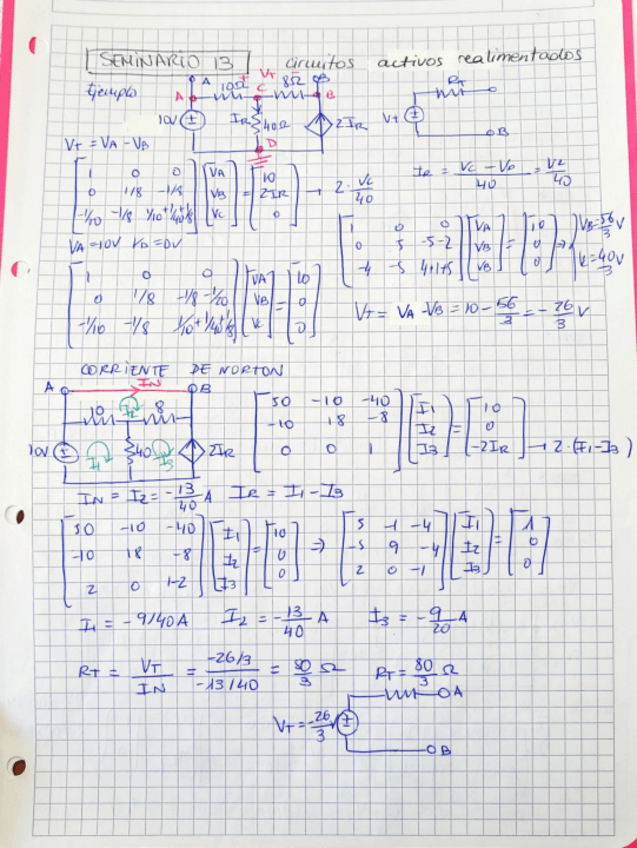 SEMINARIO 13 circuitos activos realimentados
Ejemplo
A 10Ω + VT - 8Ω B
A C B
10V IR 40Ω 2IR
D
RT
VT
B
VT = VA - VB
IR = VC - VD / 40 = VC / 40
[1 0 0; 0 1/8 -1/8; -1/10 -1/8 1/10+1/40+1/8] [VA VB VC] = [10 2IR 0] → 2·VC/40
VA = 10V VD = 0V
[1 0 0; 0 5 -5-2; -4 -5 4+1+5] [VA VB VB] = [10 0 0] ⇒ VB = 56/3 V
VC = 40/3 V
[1 0 0; 0 1/8 -1/8-1/20; -1/10 -1/8 1/10+1/40+1/8] [VA VB VC] = [10 0 0]
VT = VA - VB = 10 - 56/3 = -26/3 V
CORRIENTE DE NORTON
A IN B
10 I2 8
10V I1 40 I3 2IR
[50 -10 -40; -10 18 -8; 0 0 1] [I1 I2 I3] = [10 0 -2IR] → 2·(I1-I3)
IN = I2 = -13/40 A IR = I1 - I3
[50 -10 -40; -10 18 -8; 2 0 1-2] [I1 I2 I3] = [10 0 0] ⇒ [5 -1 -4; -5 9 -4; 2 0 -1] [I1 I2 I3] = [1 0 0]
I1 = -9/40 A I2 = -13/40 A I3 = -9/20 A
RT = VT / IN = -26/3 / -13/40 = 80/3 Ω RT = 80/3 Ω
A
VT = -26/3 V
B